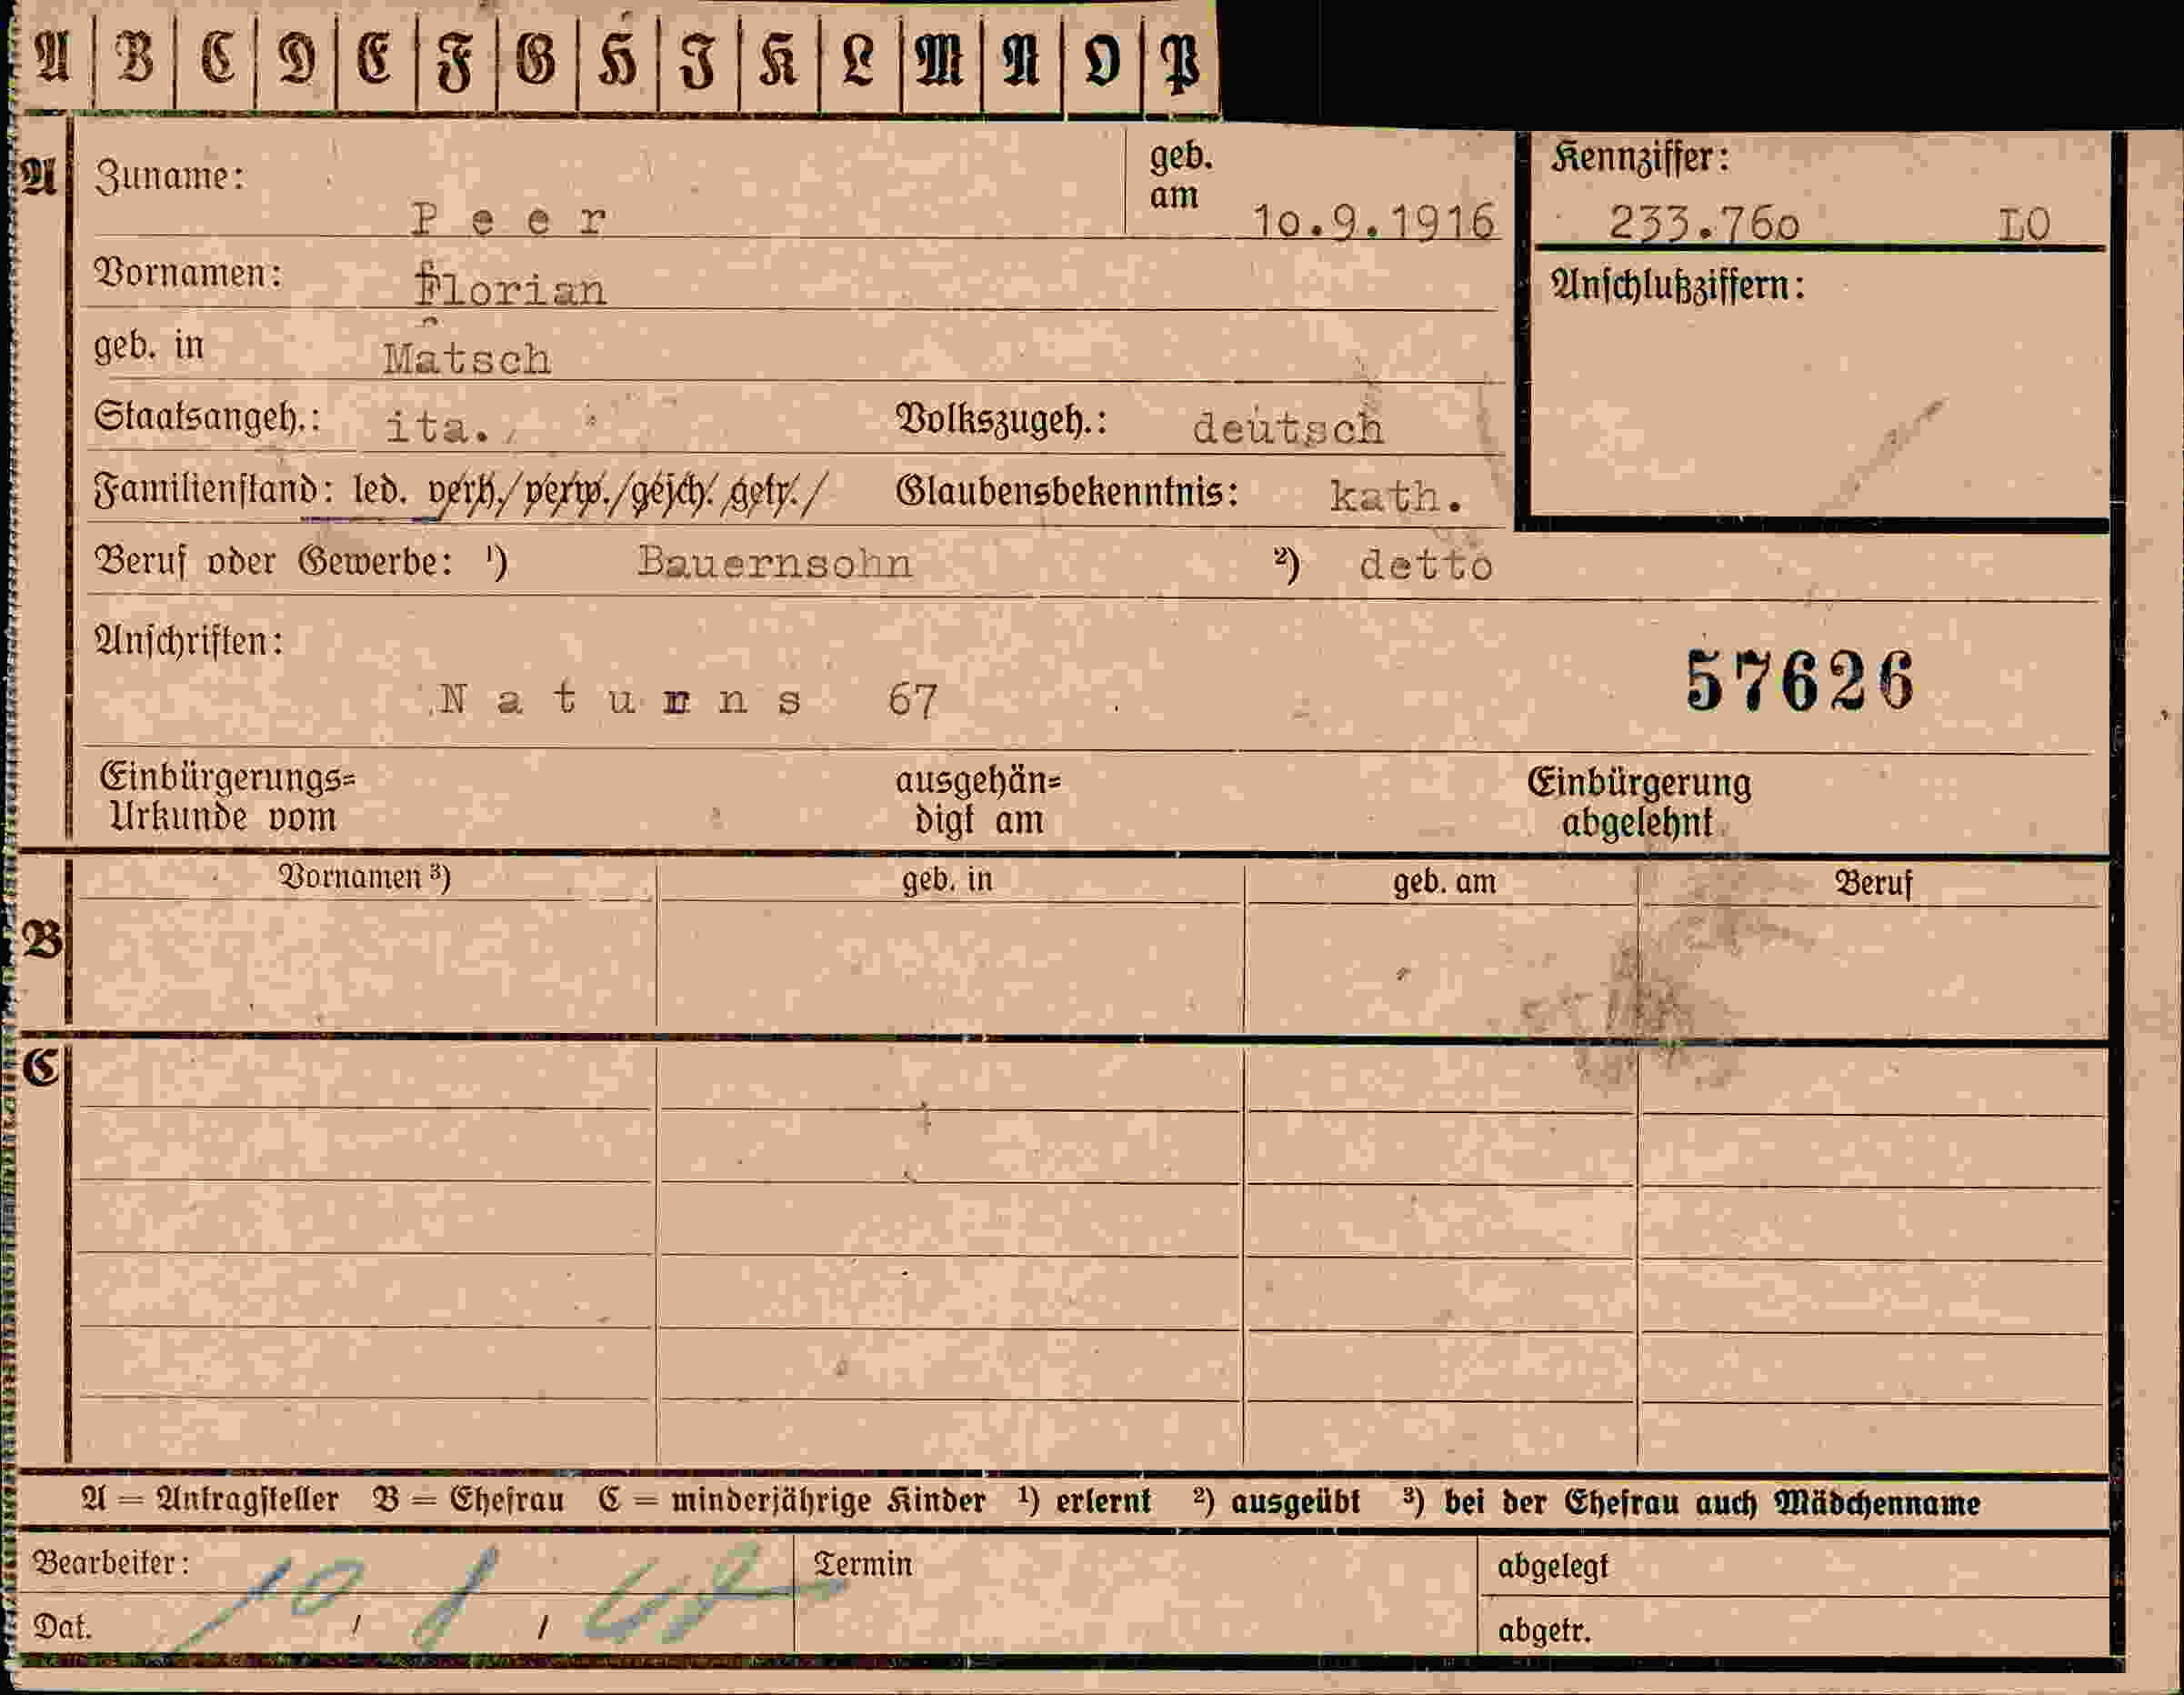 A B C D E F G H I K L M N O P
A Zuname: Peer geb. am 10.9.1916 Kennziffer: 233.760 LO
Vornamen: Florian Anschlußziffern:
geb. in Matsch
Staatsangeh.: ita. Volkszugeh.: deutsch
Familienstand: led. verh./verw./gesch./getr./ Glaubensbekenntnis: kath.
Beruf oder Gewerbe: ¹) Bauernsohn ²) detto
Anschriften:
Naturns 67 57626
Einbürgerungs= ausgehän= Einbürgerung
Urkunde vom digt am abgelehnt
Vornamen ³) geb. in geb. am Beruf
B
C
A = Antragsteller B = Ehefrau C = minderjährige Kinder ¹) erlernt ²) ausgeübt ³) bei der Ehefrau auch Mädchenname
Bearbeiter: Termin abgelegt
Dat. / / abgetr.